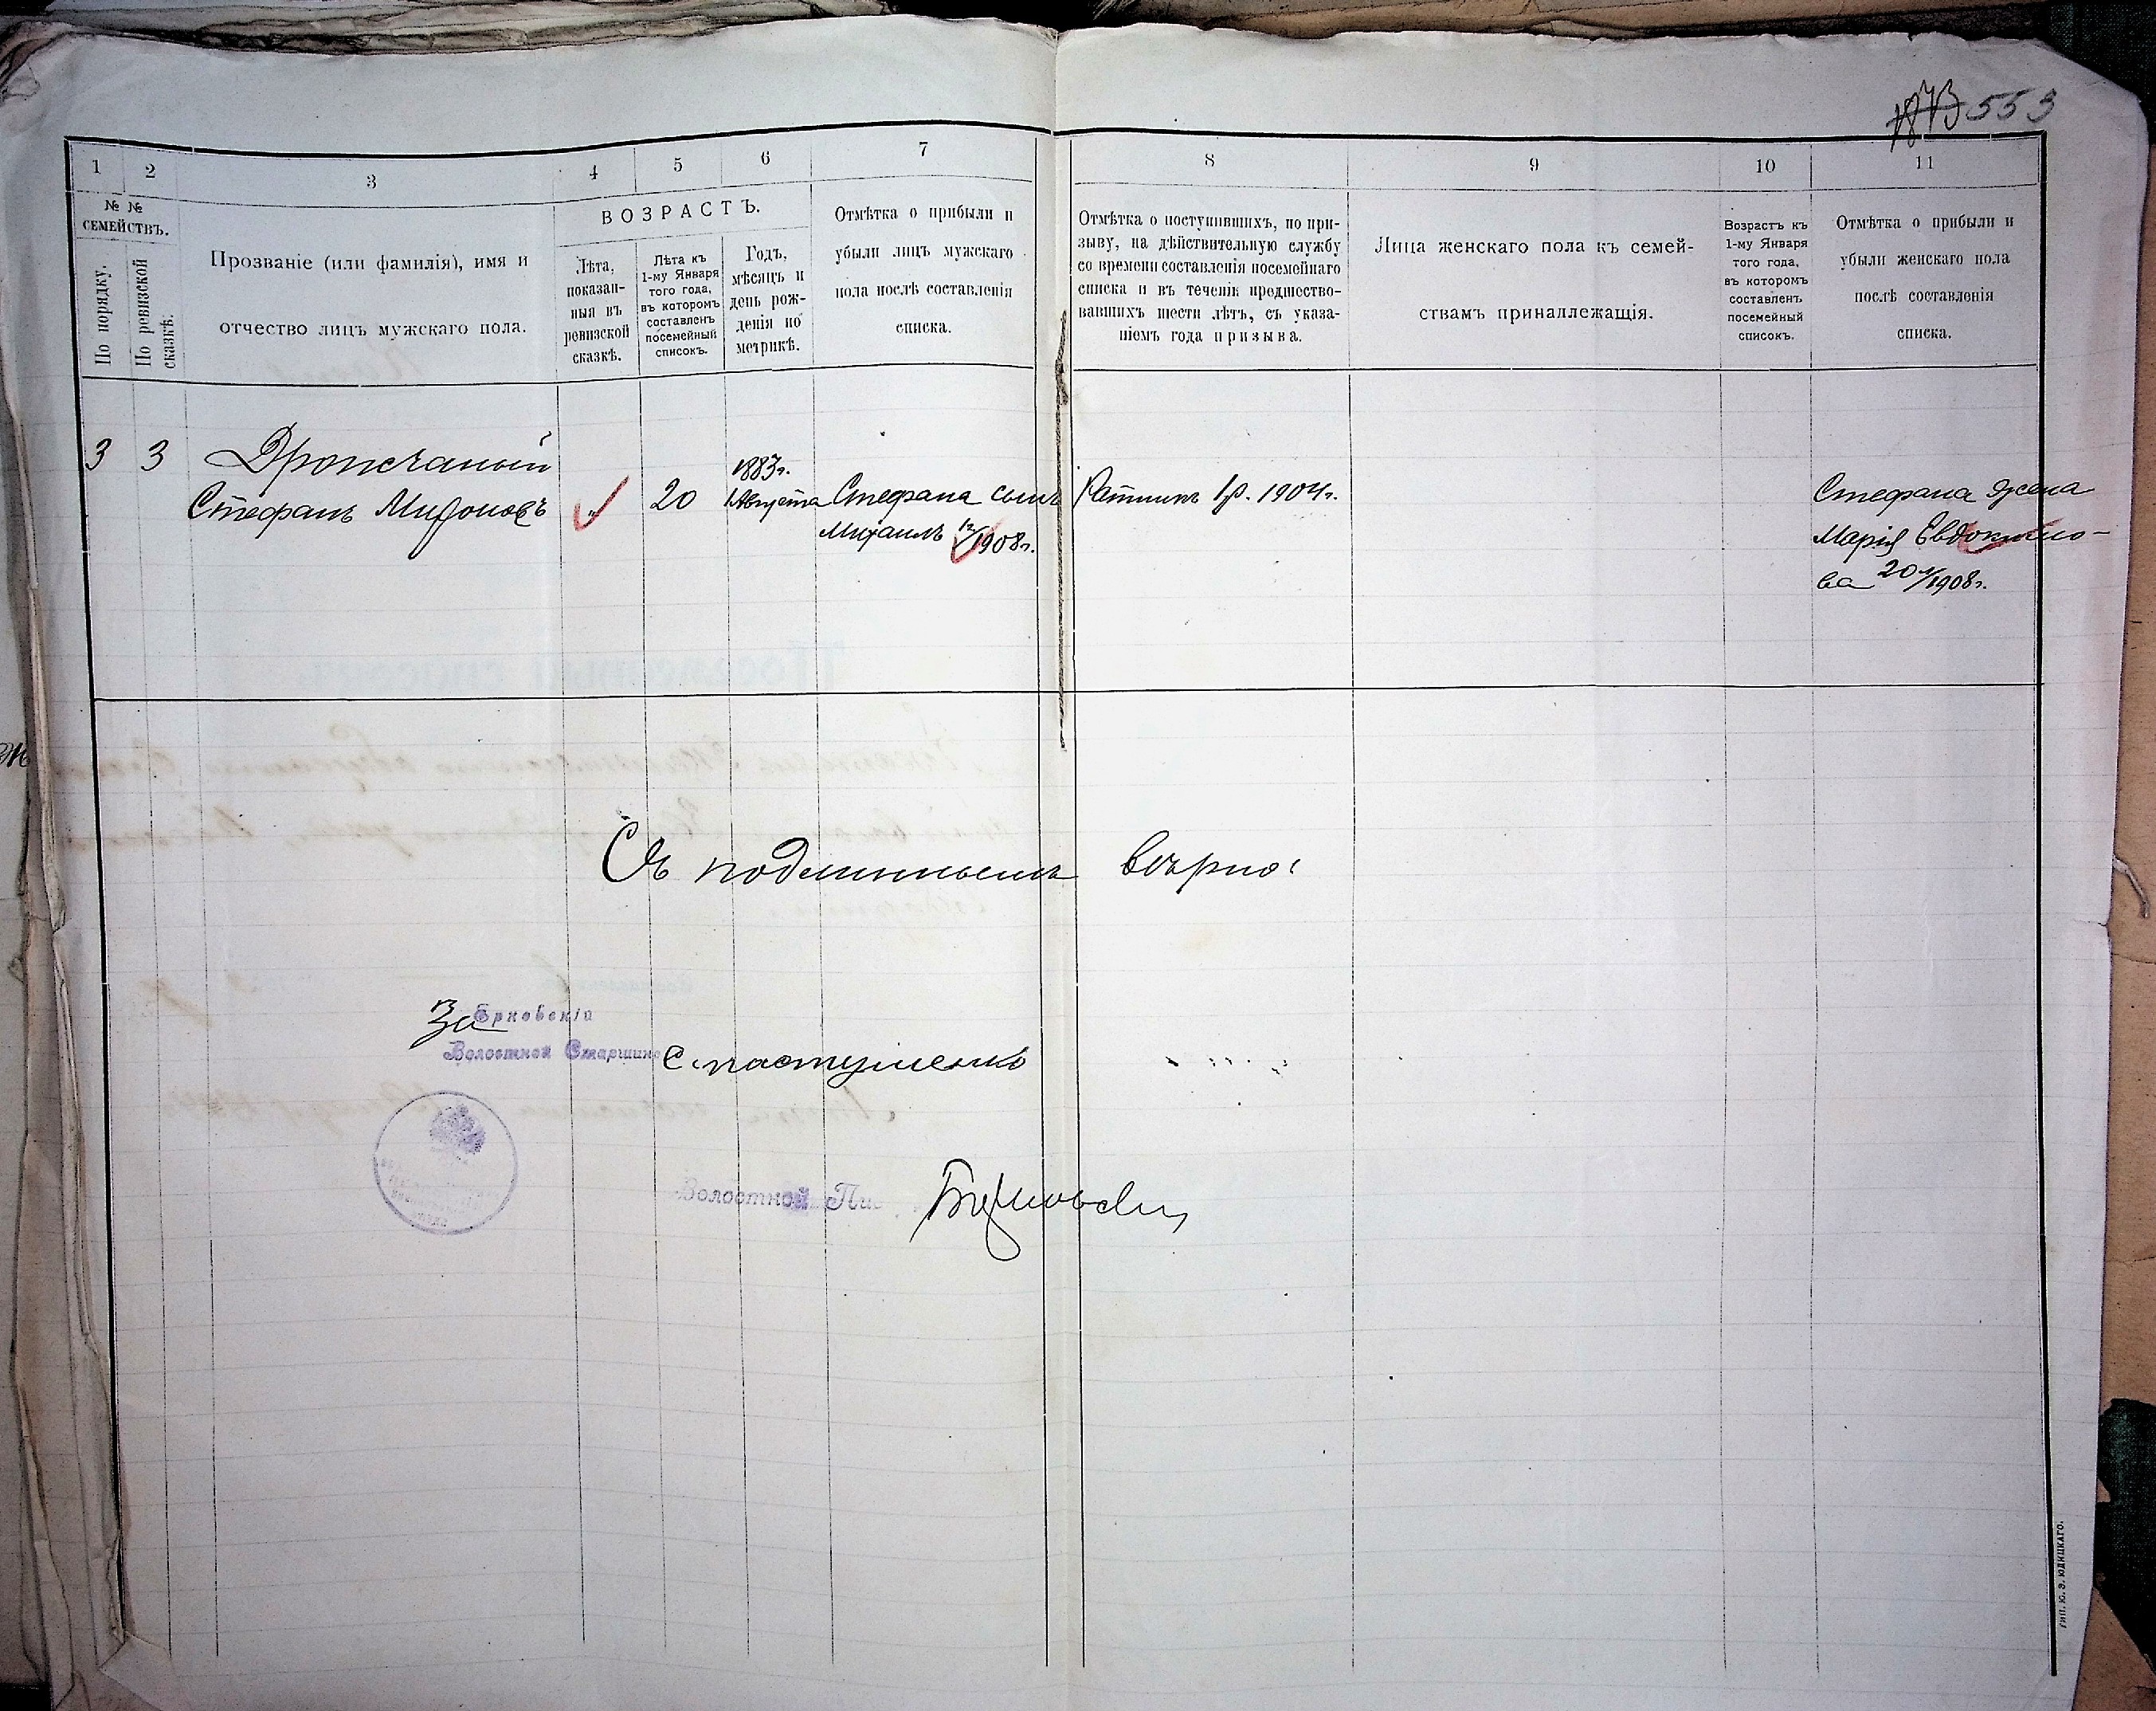 553
1 2 3 4 5 6 7 8 9 10 11
№ №
СЕМЕЙСТВЪ.
По порядку.
По ревизской
сказкѣ.
Прозваніе (или фамилія), имя и
отчество лицъ мужскаго пола.
ВОЗРАСТЪ.
Лѣта,
показан-
ныя въ
ревизской
сказкѣ.
Лѣта къ
1-му Января
того года,
въ которомъ
составленъ
посемейный
списокъ.
Годъ,
мѣсяцъ и
день рож-
денія по
метрикѣ.
Отмѣтка о прибыли и
убыли лицъ мужскаго
пола послѣ составленія
списка.
Отмѣтка о поступившихъ, по при-
зыву, на дѣйствительную службу
со времени составленія посемейнаго
списка и въ теченіи предшество-
вавшихъ шести лѣтъ, съ указа-
ніемъ года призыва.
Лица женскаго пола къ семей-
ствамъ принадлежащія.
Возрастъ къ
1-му Января
того года,
въ которомъ
составленъ
посемейный
списокъ.
Отмѣтка о прибыли и
убыли женскаго пола
послѣ составленія
списка.
3 3
Дрожчаный
Стефанъ Мироновъ
20
1883г.
Августа
Стефана сынъ
Михаилъ 1908г.
Ратникъ 1р. 1904г.
Стефана жена
Марія Евдокимо-
ва 20 1908г.
Съ подлиннымъ вѣрно:
За
Волостной Старшина
С. Пастушенко
Волостной
ТИП. Ю. Э. ЮДИЦКАГО.